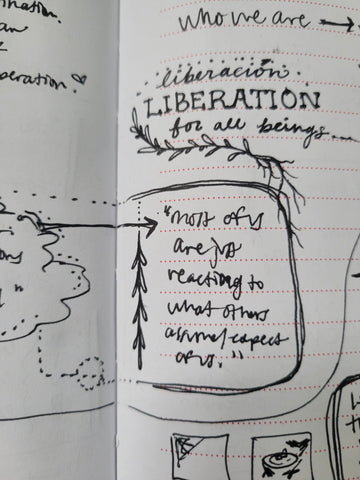 ination.
an
peration.
ons
"
who we are
liberación.
LIBERATION
for all beings...
"most of us
are just
reacting to
what others
assume/expect
of us."